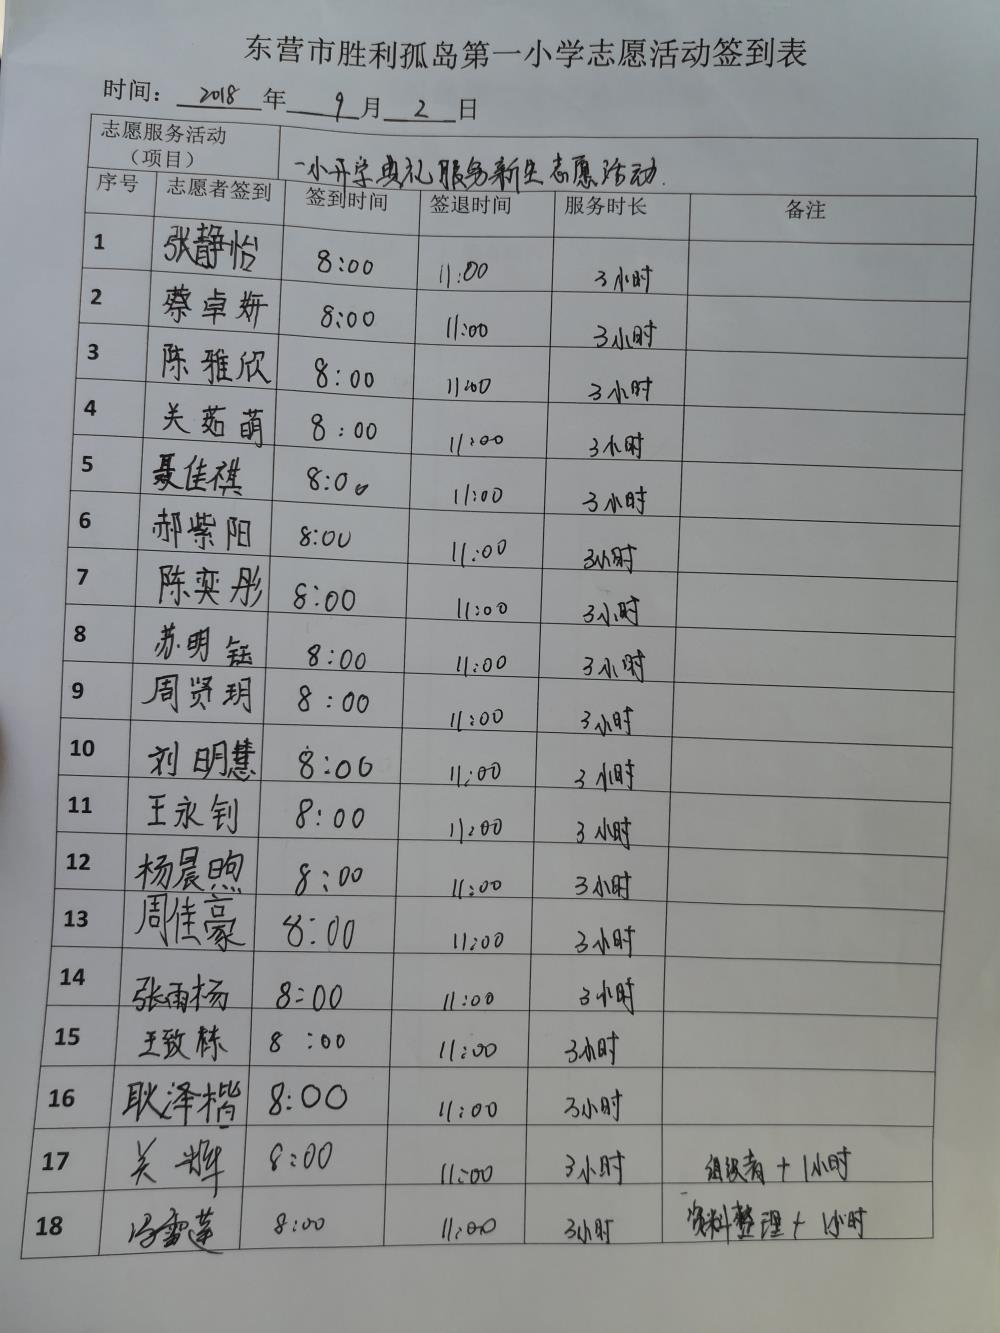 东营市胜利孤岛第一小学志愿活动签到表
时间： 2018 年 9 月 2 日
志愿服务活动（项目） 一小开学典礼服务新生志愿活动.
序号 志愿者签到 签到时间 签退时间 服务时长 备注
1 张静怡 8:00 11:00 3小时
2 蔡卓妍 8:00 11:00 3小时
3 陈雅欣 8:00 11:00 3小时
4 关茹萌 8:00 11:00 3小时
5 聂佳祺 8:00 11:00 3小时
6 郝紫阳 8:00 11:00 3小时
7 陈奕彤 8:00 11:00 3小时
8 苏明钰 8:00 11:00 3小时
9 周贤玥 8:00 11:00 3小时
10 刘明慧 8:00 11:00 3小时
11 王永钊 8:00 11:00 3小时
12 杨晨煦 8:00 11:00 3小时
13 周佳豪 8:00 11:00 3小时
14 张雨杨 8:00 11:00 3小时
15 王致栋 8:00 11:00 3小时
16 耿泽楷 8:00 11:00 3小时
17 关烨 8:00 11:00 3小时 组织者+1小时
18 冯雪莲 8:00 11:00 3小时 资料整理+1小时